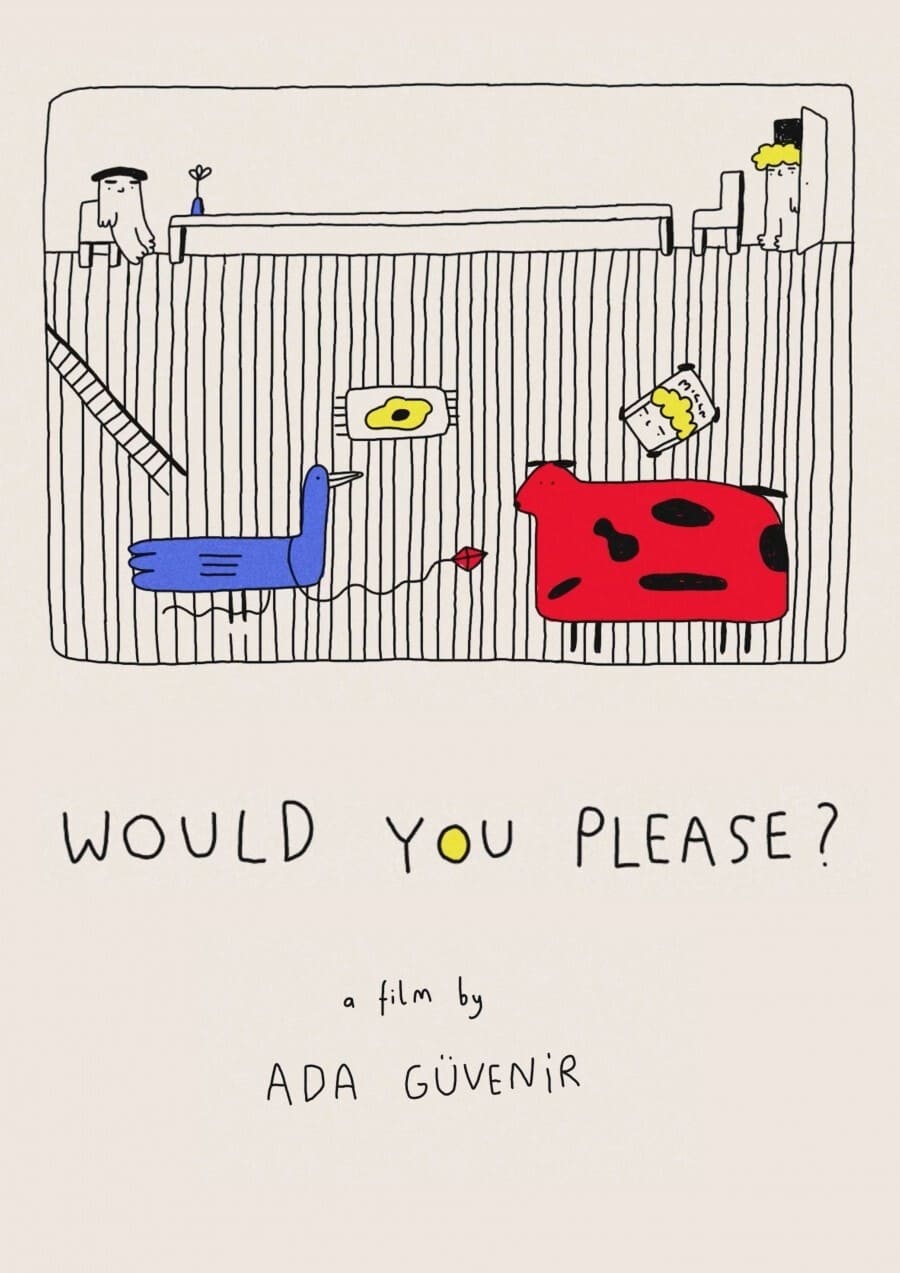 WOULD YOU PLEASE?
a film by
ADA GÜVENİR